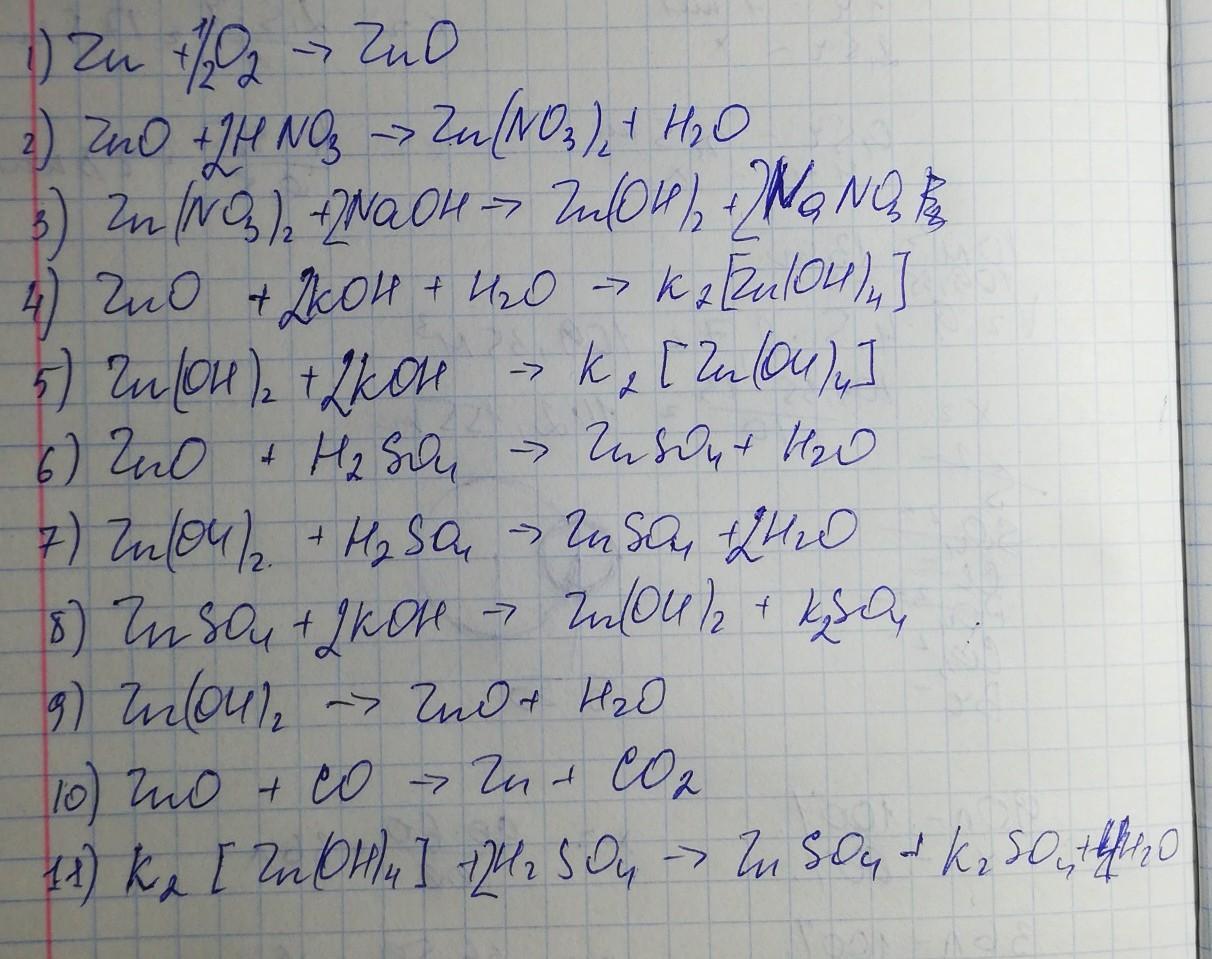 1) Zn + 1/2O2 → ZnO
2) ZnO + 2HNO3 → Zn(NO3)2 + H2O
3) Zn(NO3)2 + 2NaOH → Zn(OH)2 + 2NaNO3
4) ZnO + 2KOH + H2O → K2[Zn(OH)4]
5) Zn(OH)2 + 2KOH → K2[Zn(OH)4]
6) ZnO + H2SO4 → ZnSO4 + H2O
7) Zn(OH)2 + H2SO4 → ZnSO4 + 2H2O
8) ZnSO4 + 2KOH → Zn(OH)2 + K2SO4
9) Zn(OH)2 → ZnO + H2O
10) ZnO + CO → Zn + CO2
11) K2[Zn(OH)4] + 2H2SO4 → ZnSO4 + K2SO4 + 4H2O